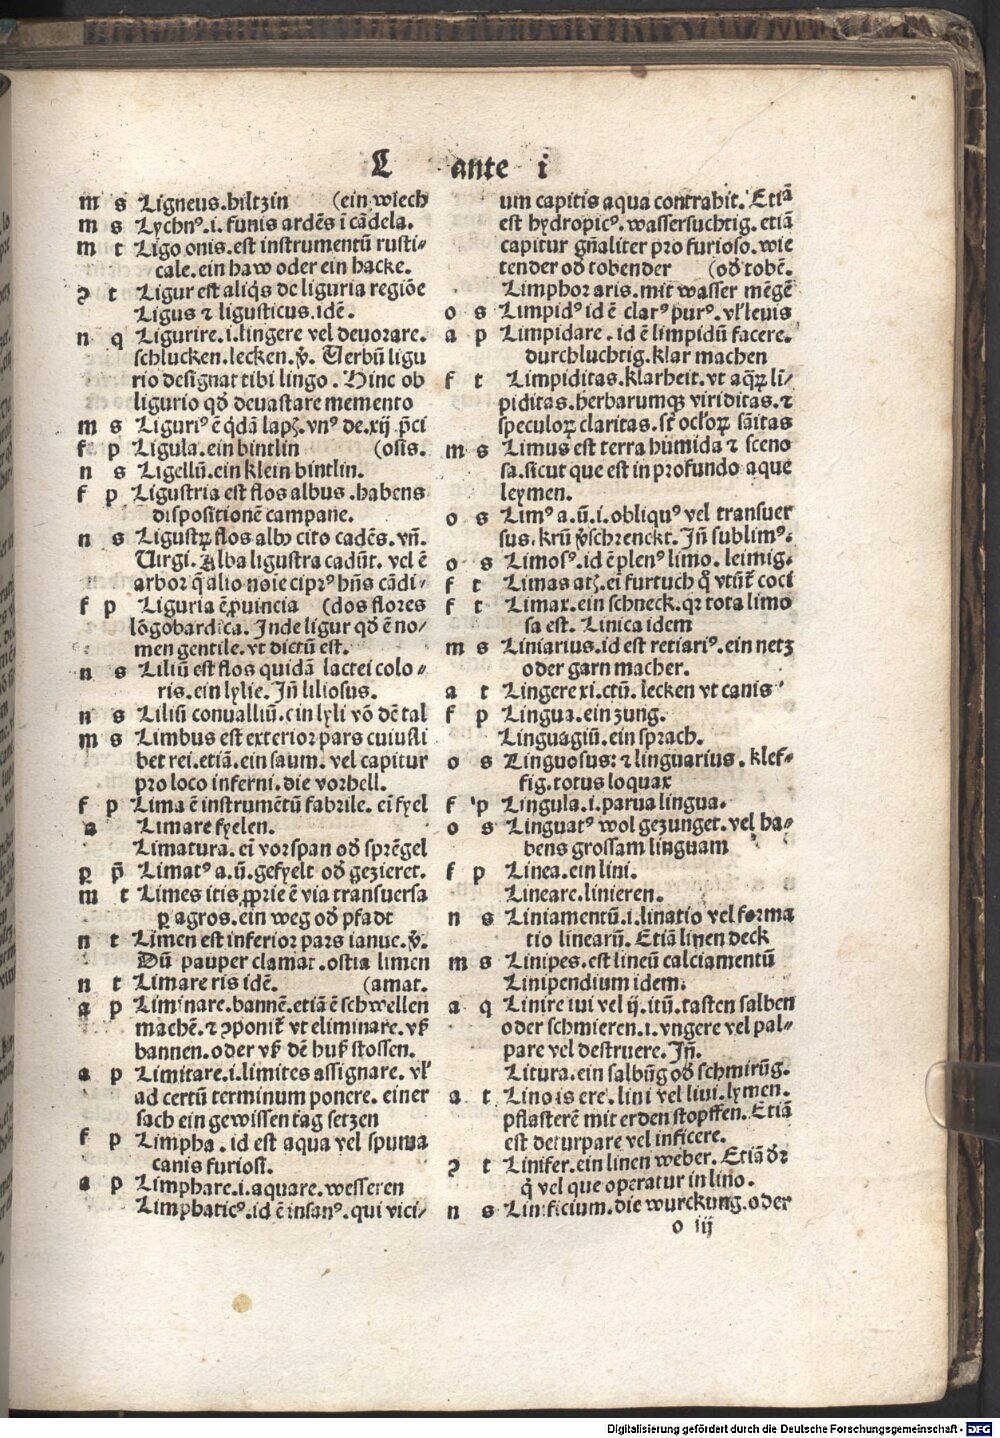 L ante i
m s Ligneus.hiltzin (ein wiech
m s Lychnꝰ.i.funis ardēs ī cādela.
m t Ligo onis.est instrumentū rusti-
cale.ein haw oder ein hacke.
ꝯ t Ligur est aliq̇s de liguria regiōe
Ligus ⁊ ligusticus.idē.
n q Ligurire.i.lingere vel deuorare.
schlucken.lecken.v̄. Uerbū ligu
rio designat tibi lingo. Hinc ob
ligurio qđ deuastare memento
m s Liguriꝰ ē q̇dā lapꝫ.vnꝰ de.xij p̄ci
f p Ligula.ein bintlin (osis.
n s Ligellū.ein klein bintlin.
f p Ligustria est flos albus.habens
dispositionē campane.
n s Ligustꝝ flos albꝰ cito cadēs.vn̄.
Uirgi. Alba ligustra cadūt. vel ē
arbor q̄ alio noīe ciprꝰ hn̄s cādi-
f p Liguria ē ꝓuincia (dos flores
lōgobardica. Inde ligur qđ ē no/
men gentile.vt dictū est.
n s Liliū est flos quidā lactei colo-
ris.ein lylie. Jn̄ liliosus.
n s Liliū conualliū.ein lyli vō dē tal
m s Limbus est exterior pars cuiusli
bet rei.etiā.ein saum. vel capitur
pro loco inferni.die vorhell.
f p Lima ē instrumētū fabrile. eī fyel
a Limare fyelen.
Limatura. eī vorspan ođ sprēgel
p p̄ Limatꝰ a.ū.gefyelt ođ gezieret.
m t Limes itis ꝓprie ē via transuersa
ꝑ agros.ein weg ođ pfadt
n t Limen est inferior pars ianue.v̄.
Dū pauper clamat.ostia limen
n t Limare ris idē. (amat.
a p Liminare.bannē.etiā ē schwellen
machē.⁊ ꝯponit̄ vt eliminare. vß
bannen.oder vß dē huß stossen.
a p Limitare.i.limites assignare. vł
ad certū terminum ponere. einer
sach ein gewissen tag setzen
f p Limpha. id est aqua vel spuma
canis furiosi.
a p Limphare.i.aquare.wesseren
Limphaticꝰ.id ē insanꝰ.qui vici/
um capitis aqua contrahit. Etiā
est hydropicꝰ.wassersuchtig. etiā
capitur gn̄aliter pro furioso.wie
tender ođ tobender (ođ tobē.
Limphor aris. mit wasser mēgē
o s Limpidꝰ id ē clarꝰ purꝰ. vł leuis
a p Limpidare. id ē limpidū facere.
durchluchtig.klar machen
f t Limpiditas.klarheit.vt aq̄ꝝ li/
piditas.herbarumqꝫ viriditas.⁊
speculoꝝ claritas.st̄ ocłoꝝ sāitas
m s Limus est terra humida ⁊ sceno
sa.sicut que est in profundo aque
leymen.
o s Limꝰ a.ū.i.obliquꝰ vel transuer
sus.krū v̄schrenckt. Jn̄ sublimꝰ.
o s Limosꝰ.id ē plenꝰ limo. leimig.
f t Limas atꝫ.ei furtuch q̄ vtūt̄ coci
f t Limax.ein schneck.qꝛ tota limo
sa est. Linica idem
m s Liniarius.id est retiariꝰ.ein netz
oder garn macher.
a t Lingere xi.ctū. lecken vt canis
f p Lingua.ein zung.
Linguagiū.ein sprach.
o s Linguosus: ⁊ linguarius. klef-
fig.totus loquax
f p Lingula.i.parua lingua.
o s Linguatꝰ wol gezunget. vel ha-
bens grossam linguam
f p Linea.ein lini.
Lineare.linieren.
n s Liniamentū.i.linatio vel forma
tio linearū. Etiā linen deck
m s Linipes.est lineū calciamentū
Linipendium idem.
a q Linire iui vel ij.itū.tasten salben
oder schmieren.i.vngere vel pal-
pare vel destruere. Jn̄.
Litura.ein salbūg ođ schmirūg.
a t Lino is ere. lini vel liui.lymen.
pflasterē mit erden stopffen. Etiā
est deturpare vel inficere.
ꝯ t Linifer.ein linen weber. Etiā dꝛ
q̇ vel que operatur in lino.
n s Linificium.die wurckung.oder
o iij
Digitalisierung gefördert durch die Deutsche Forschungsgemeinschaft - DFG